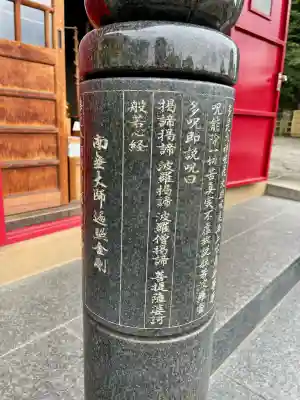 呪能除一切苦真実不虚故説般若波羅蜜
多呪即説呪曰
掲諦掲諦 波羅掲諦 波羅僧掲諦 菩提薩婆訶
般若心経
南無大師遍照金剛